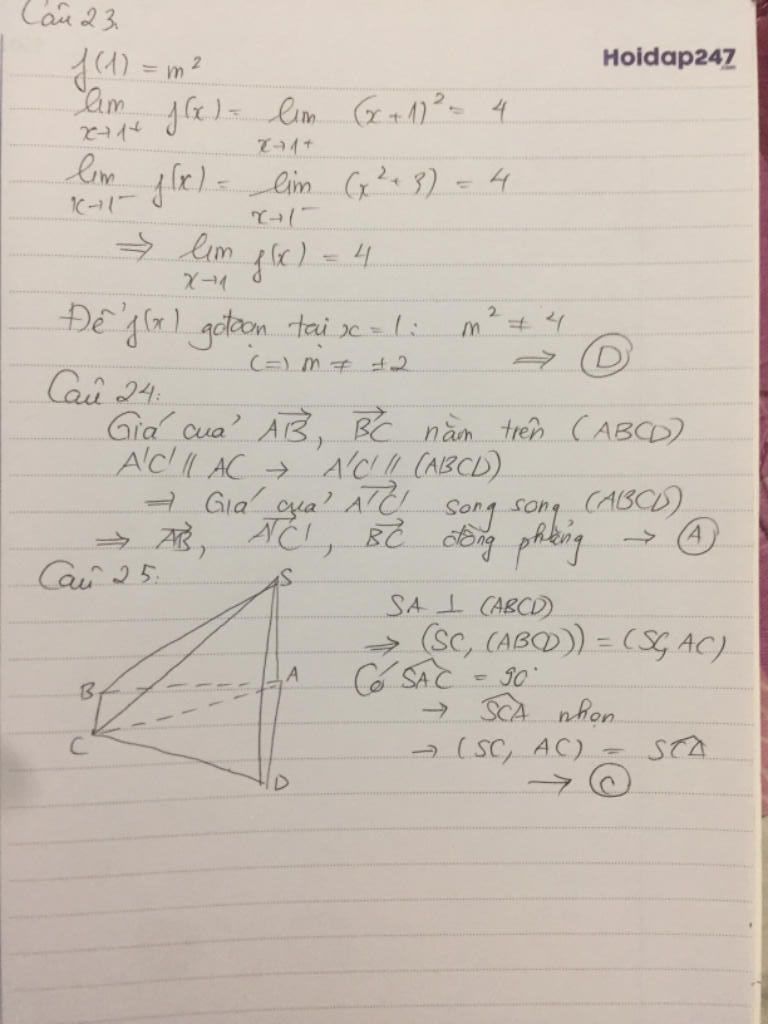 Câu 23.
Hoidap247
.com
f(1) = m²
lim x→1+ f(x) = lim x→1+ (x+1)² = 4
lim x→1⁻ f(x) = lim x→1⁻ (x²+3) = 4
⇒ lim x→1 f(x) = 4
Để f(x) gđoạn tại x = 1: m² ≠ 4
(=) m ≠ ±2 ⇒ D
Câu 24:
Giá của AB→, BC→ nằm trên (ABCD)
A'C' // AC → A'C' // (ABCD)
⇒ Giá của A'C'→ song song (ABCD)
⇒ AB→, A'C'→, BC→ đồng phẳng → A
Câu 25:
S
A
B
C
D
SA ⊥ (ABCD)
⇒ (SC, (ABCD)) = (SC, AC)
Có SAC^ = 90°
→ SCA^ nhọn
→ (SC, AC) = SCA^
→ C